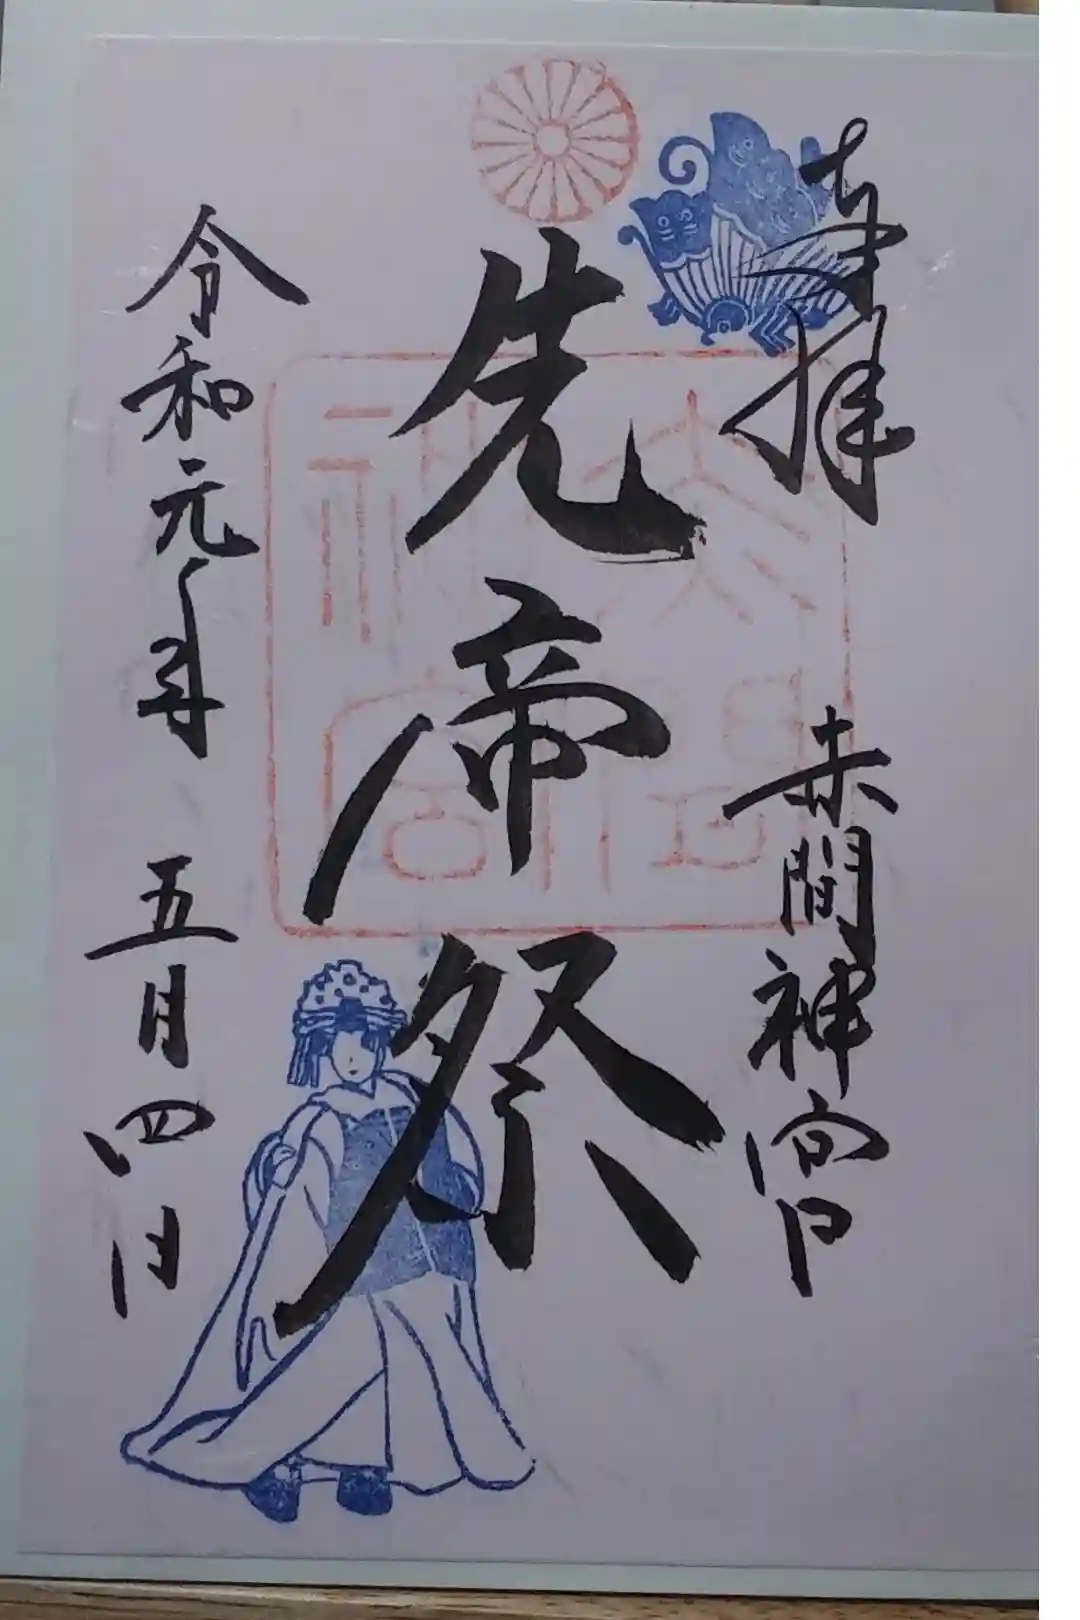 奉拝
赤間神宮
先帝祭
赤間神宮
令和元年 五月四日